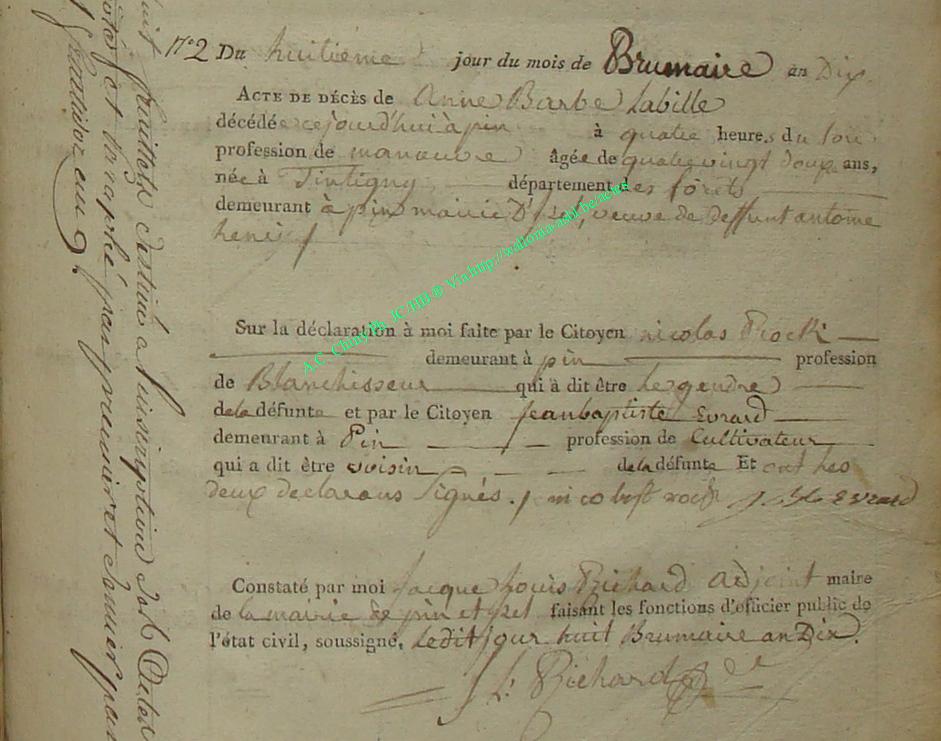 N°2 Du huitieme jour du mois de Brumaire an Dix
ACTE DE DÉCÈS de Anne Barbe Labille
décédée cejourd'hui à pin à quatre heures du soir
profession de manœuvre âgée de quatrevingt douze ans,
née à Tintigny département des forêts
demeurant à pin mairie veuve de deffunt antoine
henri
Sur la déclaration à moi faite par le Citoyen nicolas
demeurant à pin profession
de Blanchisseur qui à dit être le gendre
dela défunte et par le Citoyen jeanbaptiste Evrard
demeurant à Pin profession de Cultivateur
qui a dit être voisin dela défunte Et ont les
deux declarans signés. Evrard
Constaté par moi Jacque Louis Richard adjoint maire
de la mairie de pin et izel faisant les fonctions d'officier public de
l'état civil, soussigné, ledit jour huit Brumaire an Dix.
Richard
feuillets destiné a l'inscriptions des
et paraphé par premier et dernier par
A.C. Chiny Ph. JC/HB ® Via:http://wallonia-asbl.be/actes